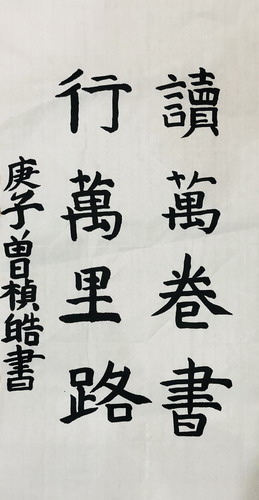 讀萬卷書
行萬里路
庚子曾楨皓書